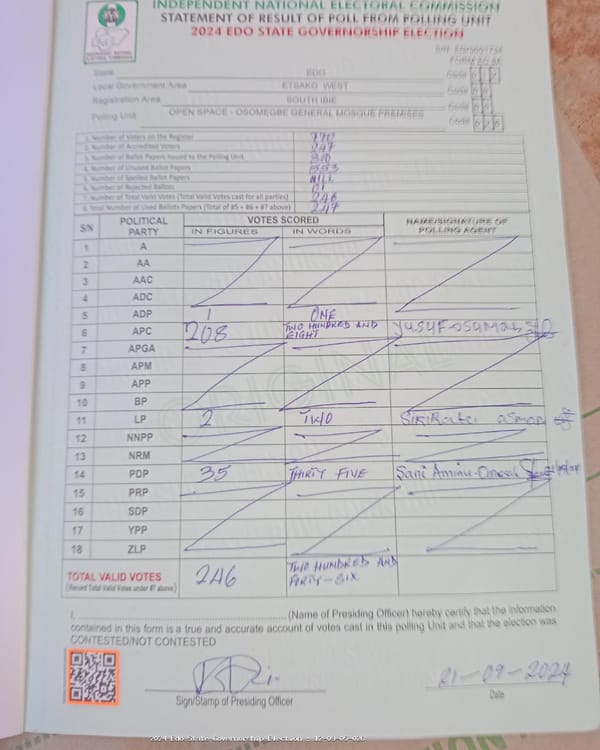 INDEPENDENT NATIONAL ELECTORAL COMMISSION
STATEMENT OF RESULT OF POLL FROM POLLING UNIT
2024 EDO STATE GOVERNORSHIP ELECTION
State EDO Code
Local Government Area ETSAKO WEST Code
Registration Area SOUTH IBIE Code
Polling Unit OPEN SPACE - OSOMEGBE GENERAL MOSQUE PREMISES Code
1. Number of Voters on the Register 770
2. Number of Accredited Voters 247
3. Number of Ballot Papers Issued to the Polling Unit
4. Number of Unused Ballot Papers 553
5. Number of Spoiled Ballot Papers NILL
6. Number of Rejected Ballots 01
7. Number of Total Valid Votes (Total Valid Votes cast for all parties) 246
8. Total Number of Used Ballots Papers (Total of #5 + #6 + #7 above) 247
S/N POLITICAL PARTY VOTES SCORED NAME/SIGNATURE OF POLLING AGENT
IN FIGURES IN WORDS
1 A
2 AA
3 AAC
4 ADC
5 ADP 1 ONE
6 APC 208 TWO HUNDRED AND EIGHT Yusuf Osumah
7 APGA
8 APM
9 APP
10 BP
11 LP 2 TWO
12 NNPP
13 NRM
14 PDP 35 THIRTY FIVE Sani Aminu-Omoah
15 PRP
16 SDP
17 YPP
18 ZLP
TOTAL VALID VOTES 246 TWO HUNDRED AND
(Record Total Valid Votes under #7 above) FORTY-SIX
ORIGINAL
I, (Name of Presiding Officer) hereby certify that the information
contained in this form is a true and accurate account of votes cast in this polling Unit and that the election was
CONTESTED/NOT CONTESTED
21-09-2024
Sign/Stamp of Presiding Officer Date
2024 Edo State Governorship Election - 12-09-05-026